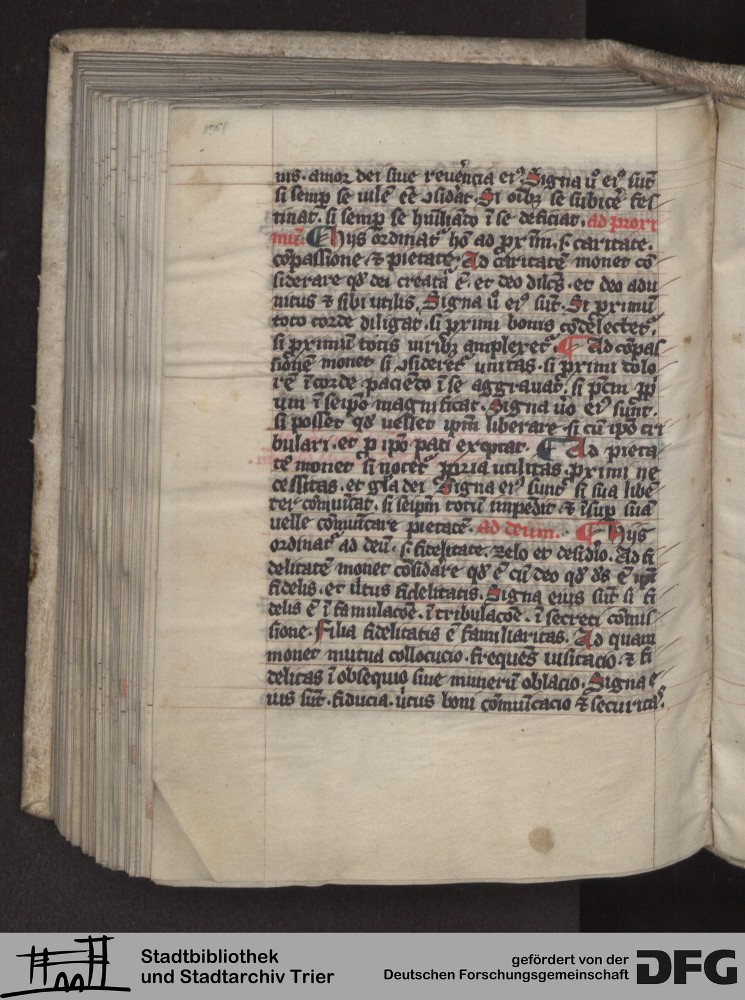 uis. amor dei siue reuerēcia eiꝰ. Signa ū eiꝰ sūt
si semp se uile eē ↄsidat. Si oībꝫ se subicē fes
tinat. si semp se humiliato ī se deficiat. ad proxi
mū. Hijs ordinat᷑ hō ad ꝓximū. s. caritate.
cōpassione ⁊ pietate. Ad caritatē monet cō
siderare qđ dei creatā ē. et deo dilcꝫ. et deo adu
nitus ⁊ sibi utilis. Signa ū eiꝰ sūt. Si proximū
toto corde diligat. si proximi bonis cōdelectet᷑.
si proximū totis uiribꝫ amplexet᷑. Ad cōpas
sionē monet si ↄsideret᷑ unitas. si proximi dolo
rē ī corde paciēto ī se aggrauat. si pctm ꝓp
um ī seipō magnificat. Signa ūo eiꝰ sunt.
si posset qđ uellet ipm liberare. si cū ipō tri
bulari. et p ipō pati exoptat. Ad pieta
tē monet si nocet᷑ ppria utilitas. proximi ne
cessitas. et gl̄a dei. Signa eiꝰ sunt si sua libē
ter cōmuīcat. si seipm totū impedit ⁊ īsup sua
uelle cōmuīcare pietatē. Ad deum. Hijs
ordinat᷑ ad deū. s. fidelitate. zelo et desidīo. Ad fi
delitatē monet cōsidare qđ ē cū deo qđ d̄s ē
fidelis. et ūtus fidelitatis. Signa eius sūt si fi
delis ē ī famulacōe. ī tribulacōe. ī secreti cōmis
sione. Filia fidelitatis ē familiaritas. Ad quam
monet mutua collocucio. frequēs uisitacio. ⁊ fi
delitas ī obsequio siue munerū oblacio. Signa e
ius sūt. fiducia. ūtus boni cōmuīcacio ⁊ securitaꝰ.
Stadtbibliothek
und Stadtarchiv Trier
gefördert von der
Deutschen Forschungsgemeinschaft
DFG